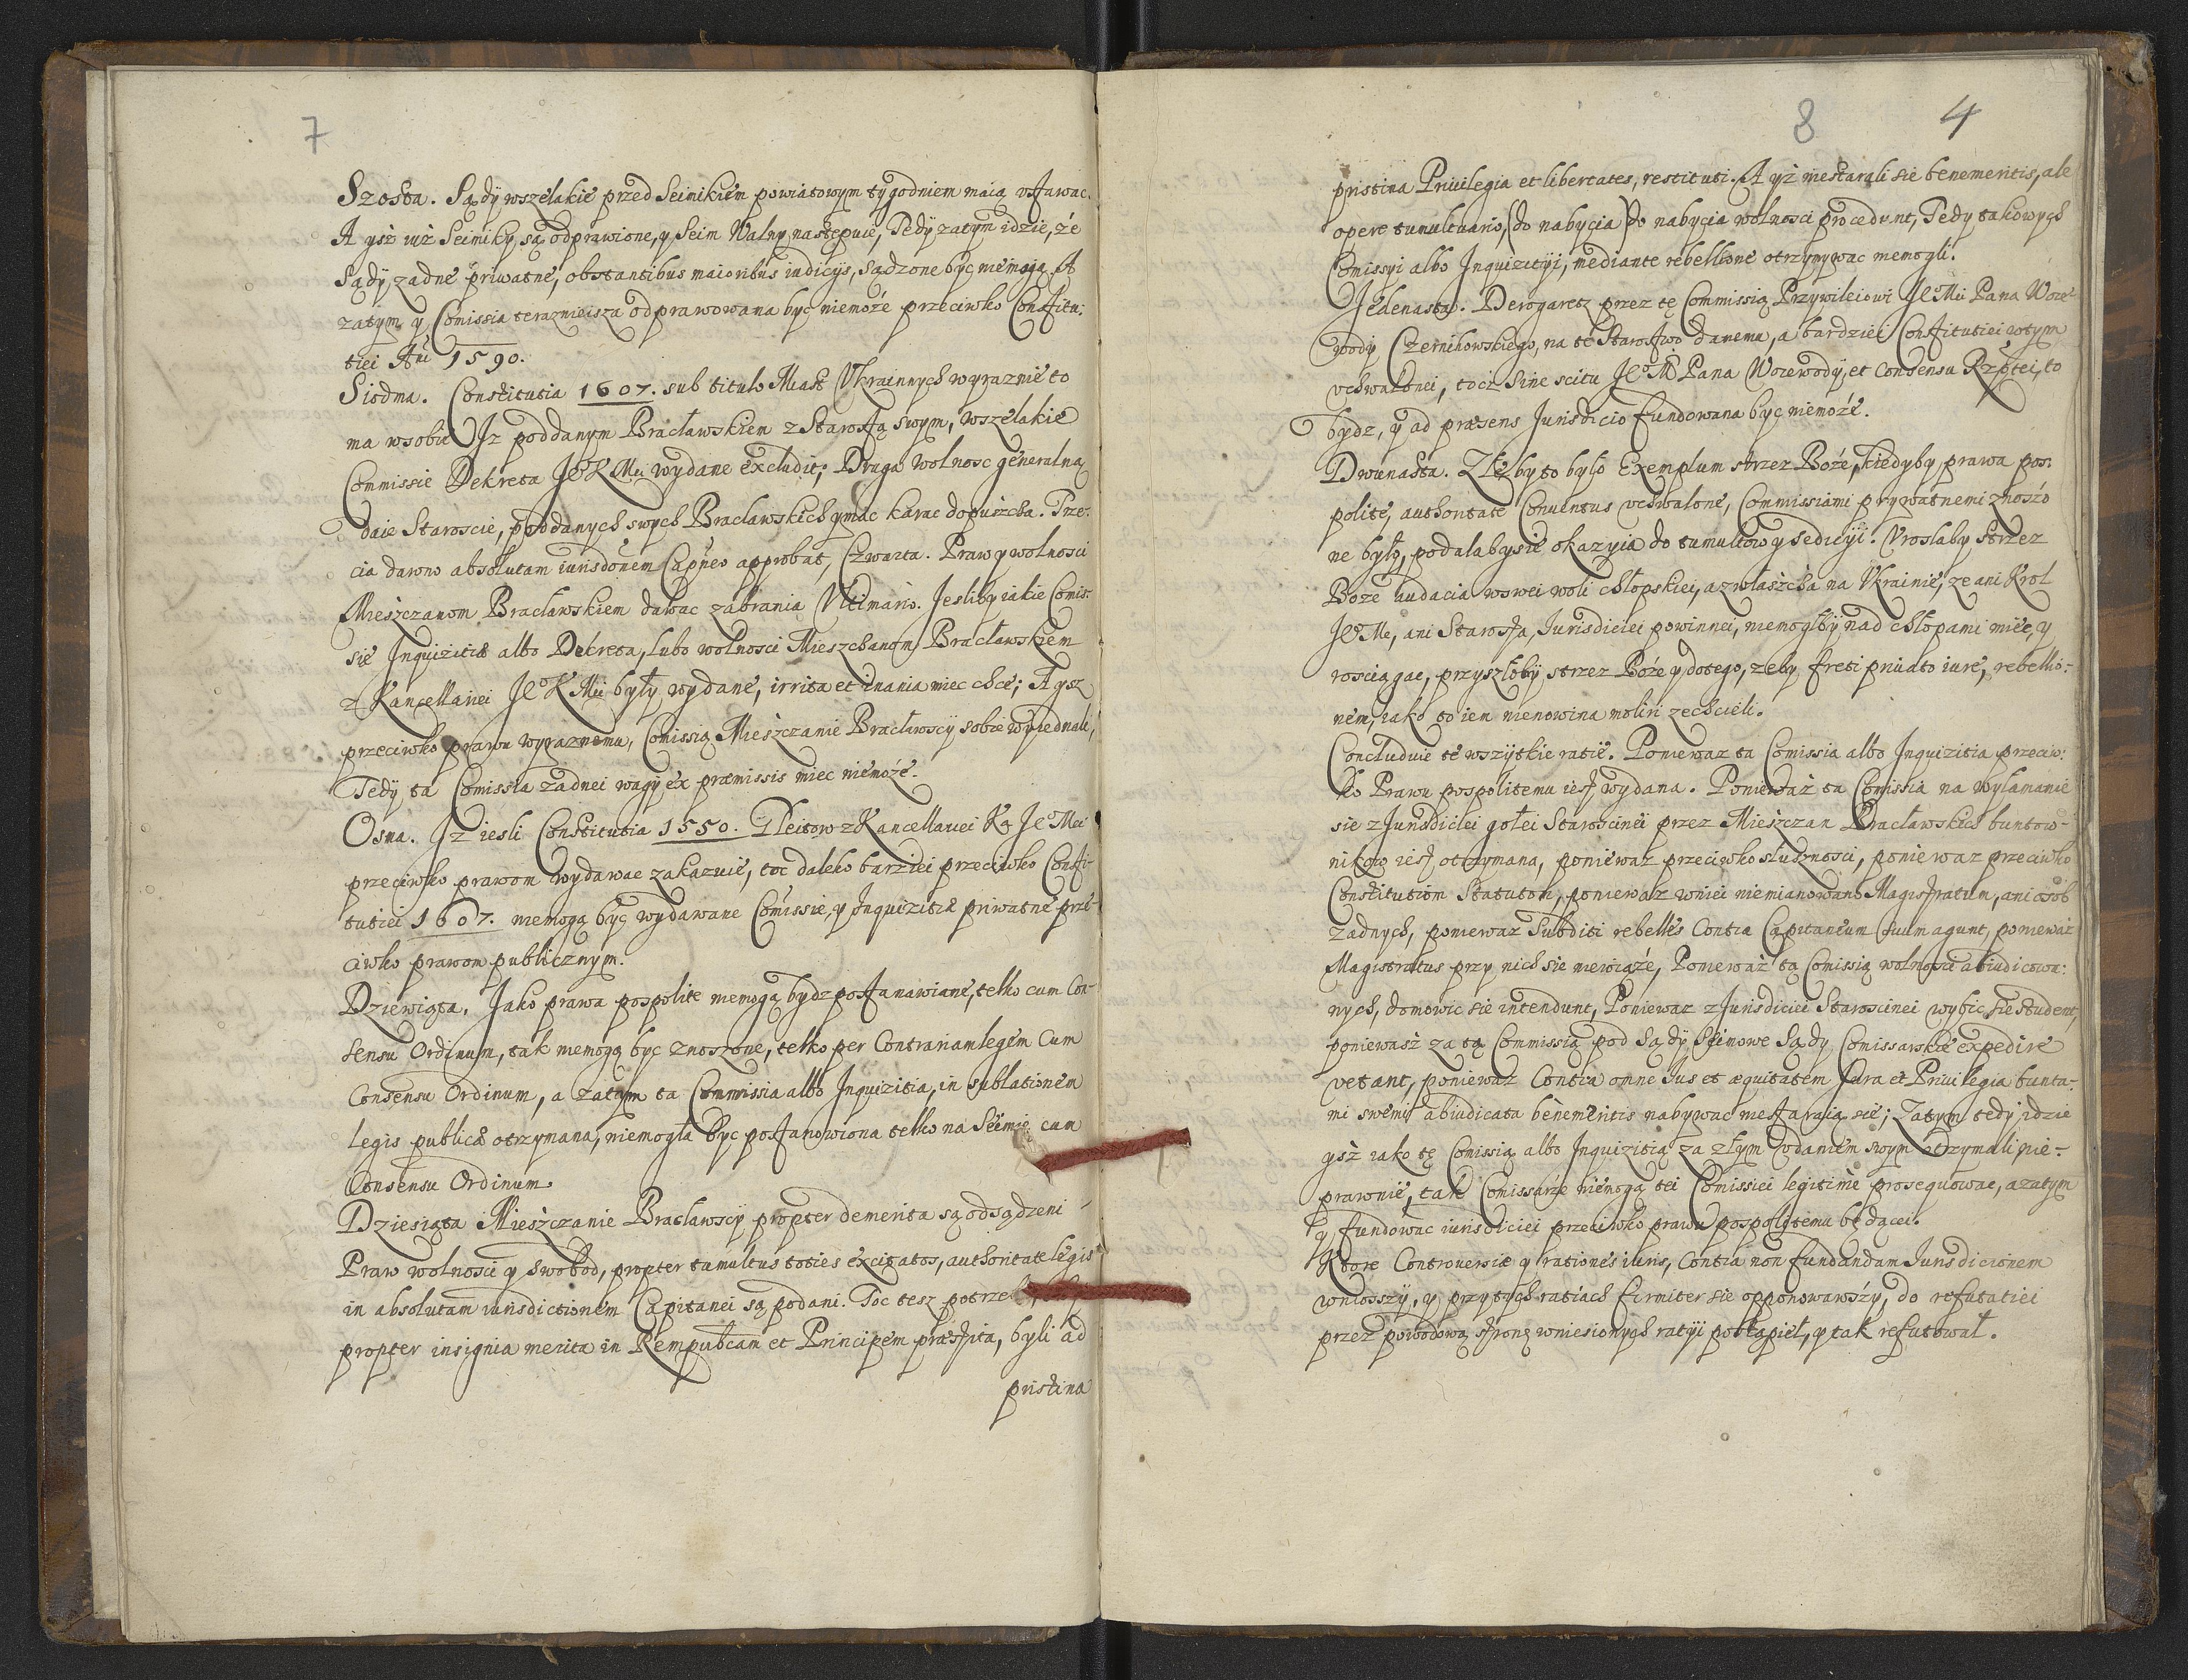 7
Szosta. Sądÿ wszelakie przed Seimikiem powiatowym tygodniem maią ustawac.
A ysż iuż Seimiky są odprawione, y Seim Walny nastepuie, Tedÿ zatym idzie, że
Sądÿ zadne priwatne, obstantibus maioribus iudicijs, sądzone byc niemogą. A
zatym y Comissia teraznieisza odprawowana byc niemoże przeciwko Constitu:
tiei Aň 1590.
Siodma. Constitutia 1607. sub titulo Miast Vkrainnych wyraznie to
ma wsobie Jz poddanym Bracławskiem z Starostą swym, wszelakie
Commissie Dekreta Je K Mći wydane excludit; Druga wolnosc generalną
daie Staroscie, poddanych swych Bracławskich ymac karac dopuszcza. Trze:
cia dawno absolutam iurisdonem Capneo approbat, Czwarta. Praw y wolnosci
Mieszczanom Bracławskiem dawac zabrania Vltimario. Jesliby iakie Comis-
sie Jnquizitiæ albo Dekreta, lubo wolnosci Mieszczanom Bracławskiem
z Kancellariei Je K Mći były wydane, irrita et inania miec chce; A ysz
przeciwko prawu wyraznemu, Comissią Mieszczanie Bracławscÿ sobie wyiednali,
Tedÿ ta Comissia zadnei wagÿ ex præmissis miec niemoże.
Osma. Jz iesli Constitutia 1550. Gleitow z Kancellariei K. Je Mći
przeciwko prawom wydawac zakazuie, toc daleko barziei przeciwko Consti-
tutiei 1607. niemogą byc wydawane Comissie, y Jnquizitiæ priwatne prze-
ciwko prawom publicznym.
Dziewiąta. Jako prawa pospolite niemogą bydz postanawiane, telko cum Con-
sensu Ordinum, tak niemogą byc znoszone, telko per Contrariam legem Cum
Consensu Ordinum, a zatym ta Commissia albo Jnquizitia, in sublationem
legis publicæ otrzymana, niemogła byc postanowiona telko na Seimie cum
Consensu Ordinum.
Dziesiąta Mieszczanie Bracławscÿ propter demerita są odsądzeni
Praw wolnosci y swobod, propter tumultus toties excitatos, authoritate legis
in absolutam iurisdictionem Capitanei są podani. Toc tesz potrze
propter insignia merita in Rempubcam et Principem præstita, byli ad
pristina
8 4
pristina Priuilegia et libertates, restituti. A yż niestarali sie benemeritis, ale
opere tumultuario, (do nabycia) do nabycia wolnosci procedunt, Tedy takowych
Comissyi albo Jnquizitÿi, mediante rebellione otrzymywac niemogli.
Jedenasta. Derogaretz przez tę Commissią Przywileiowi Je Mći Pana Woie-
wodÿ Czernihowskiego, na te Starostwo danemu, a bardziei Constitutiei wtym
vchwalonei, tociz sine scitu Je M Pana Woiewodÿ, et consensu Rzptei, to
bydz, y ad præsens Jurisdicio fundowana byc niemoże.
Dwunasta. Złe by to było Exemplum strzez Boże, kiedyby prawa pos:
polite, authoritate Conuentus vchwalone, Commissiami prywatnemi znoszo
ne było, podałabysie okazyia do tumultow y sedicyi. Vrosłaby strzez
Boze audacia wswei woli chłopskiei, a zwłaszcza na Vkrainie, ze ani Krol
Je Mc, ani Starosta, Jurisdiciei powinnei, niemogłby nad chłopami miec, y
rosciągac, przyszłobÿ strzez Boże y dotego, zeby freti priuato iure, rebellio-
nem, iako to iem nienowina moliri zechcieli.
Concluduie te wszytkie ratie. Poniewaz ta Comissia albo Jnquizitia przeciw:
ko Prawu pospolitemu iest wydana. Ponieważ ta Comissia na wyłamanie
sie z Jurisdiciei gołei Starościnei przez Mieszczan Bracławskich buntow-
nikow iest otrzymana, poniewaz przeciwko słusznosci, poniewaz przeciwko
Constitutiom Statutom, poniewaz wniei niemianowano Magistratum, ani osob
zadnych, poniewaz Subditi rebelles Contra Capitaneum suum agunt, poniewaz
Magistratus przy nich sie niewiąże, Ponieważ tą Comissią wolnosci abiudicowa:
nych, domowic sie intendunt, Poniewaz z Jurisdiciei Starościnei wybic sie student,
poniewasż za tą Commissią pod Sądÿ Seimowe Sądy Comissarskie expedire
vetant, poniewaz Contra omne Jus et æquitatem Jura et Priuilegia bunta-
mi swemi abiudicata benemeritis nabywac niestaraią sie; Zatym tedy idzie
ysż iako tę Comissią albo Jnquizitią za złym vdaniem swym otrzymali nie-
prawnie, tak Comissarze niemogą tei Comissiei legitime prosequowac, a zatym
y fundowac iurisdiciei przeciwko prawu pospolitemu będącei.
Ktore Controuersie y rationes iuris, Contra non fundandam Jurisdicionem
wniosszÿ, y przytych ratiach firmiter sie opponowawszÿ, do refutatiei
przez powodową stronę wniesionych ratÿi postąpieł, y tak refutował.